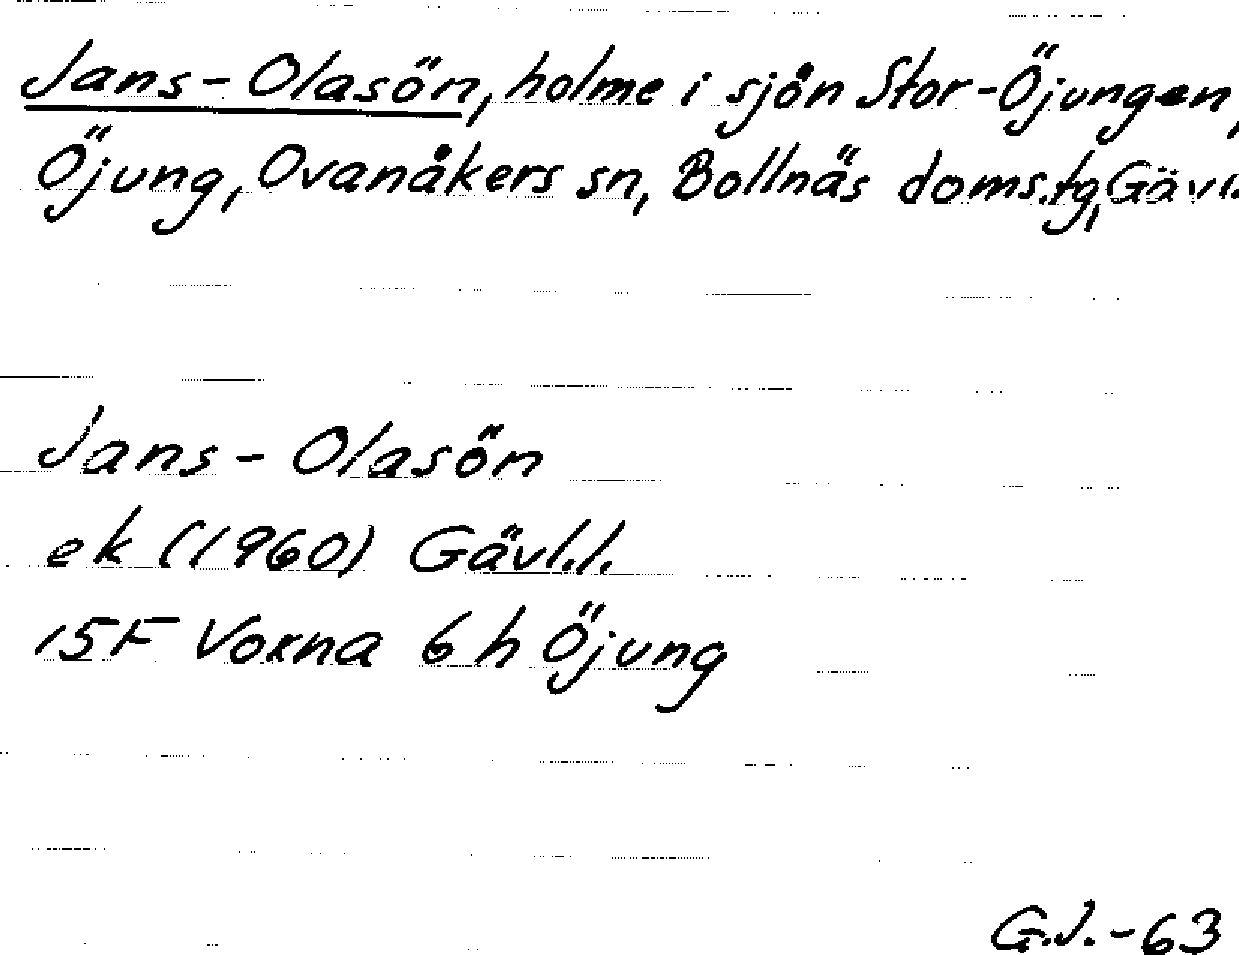 Jans-Olasön, holme i sjön Stor-Öjungen,
Öjung, Ovanåkers sn, Bollnäs doms.tg, Gävl.
Jans-Olasön
ek (1960) Gävl.l.
15F Voxna 6 h Öjung
G.J.-63